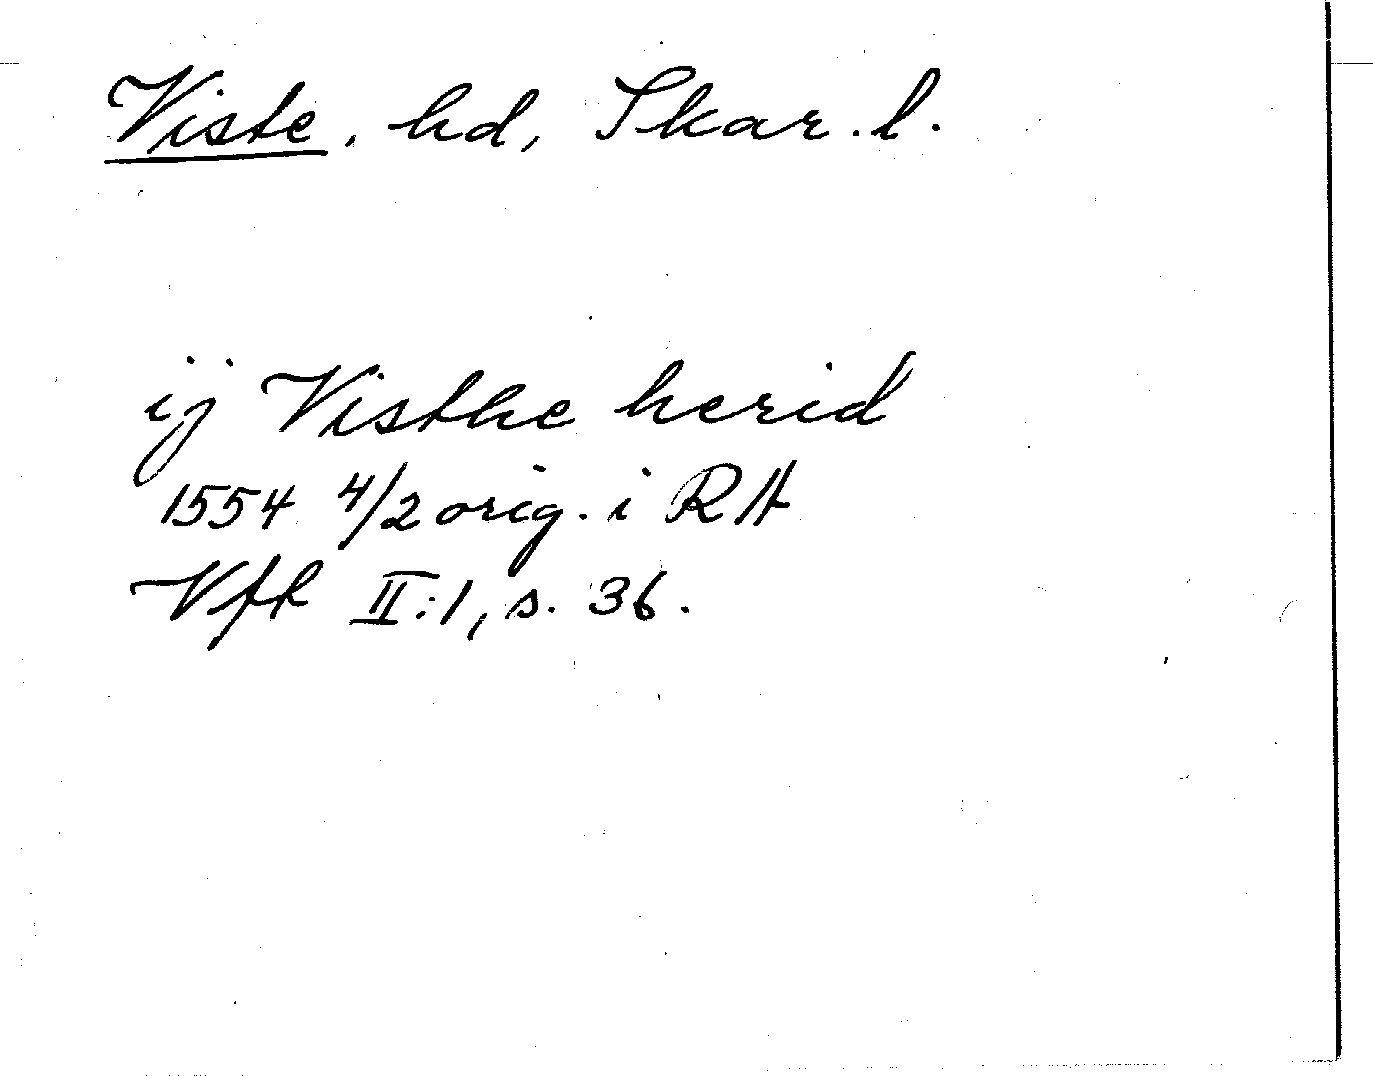 Viste, hd, Skar. l.
ij Visthe herid
1554 4/2 orig. i RA
Vfr II:1, s. 36.